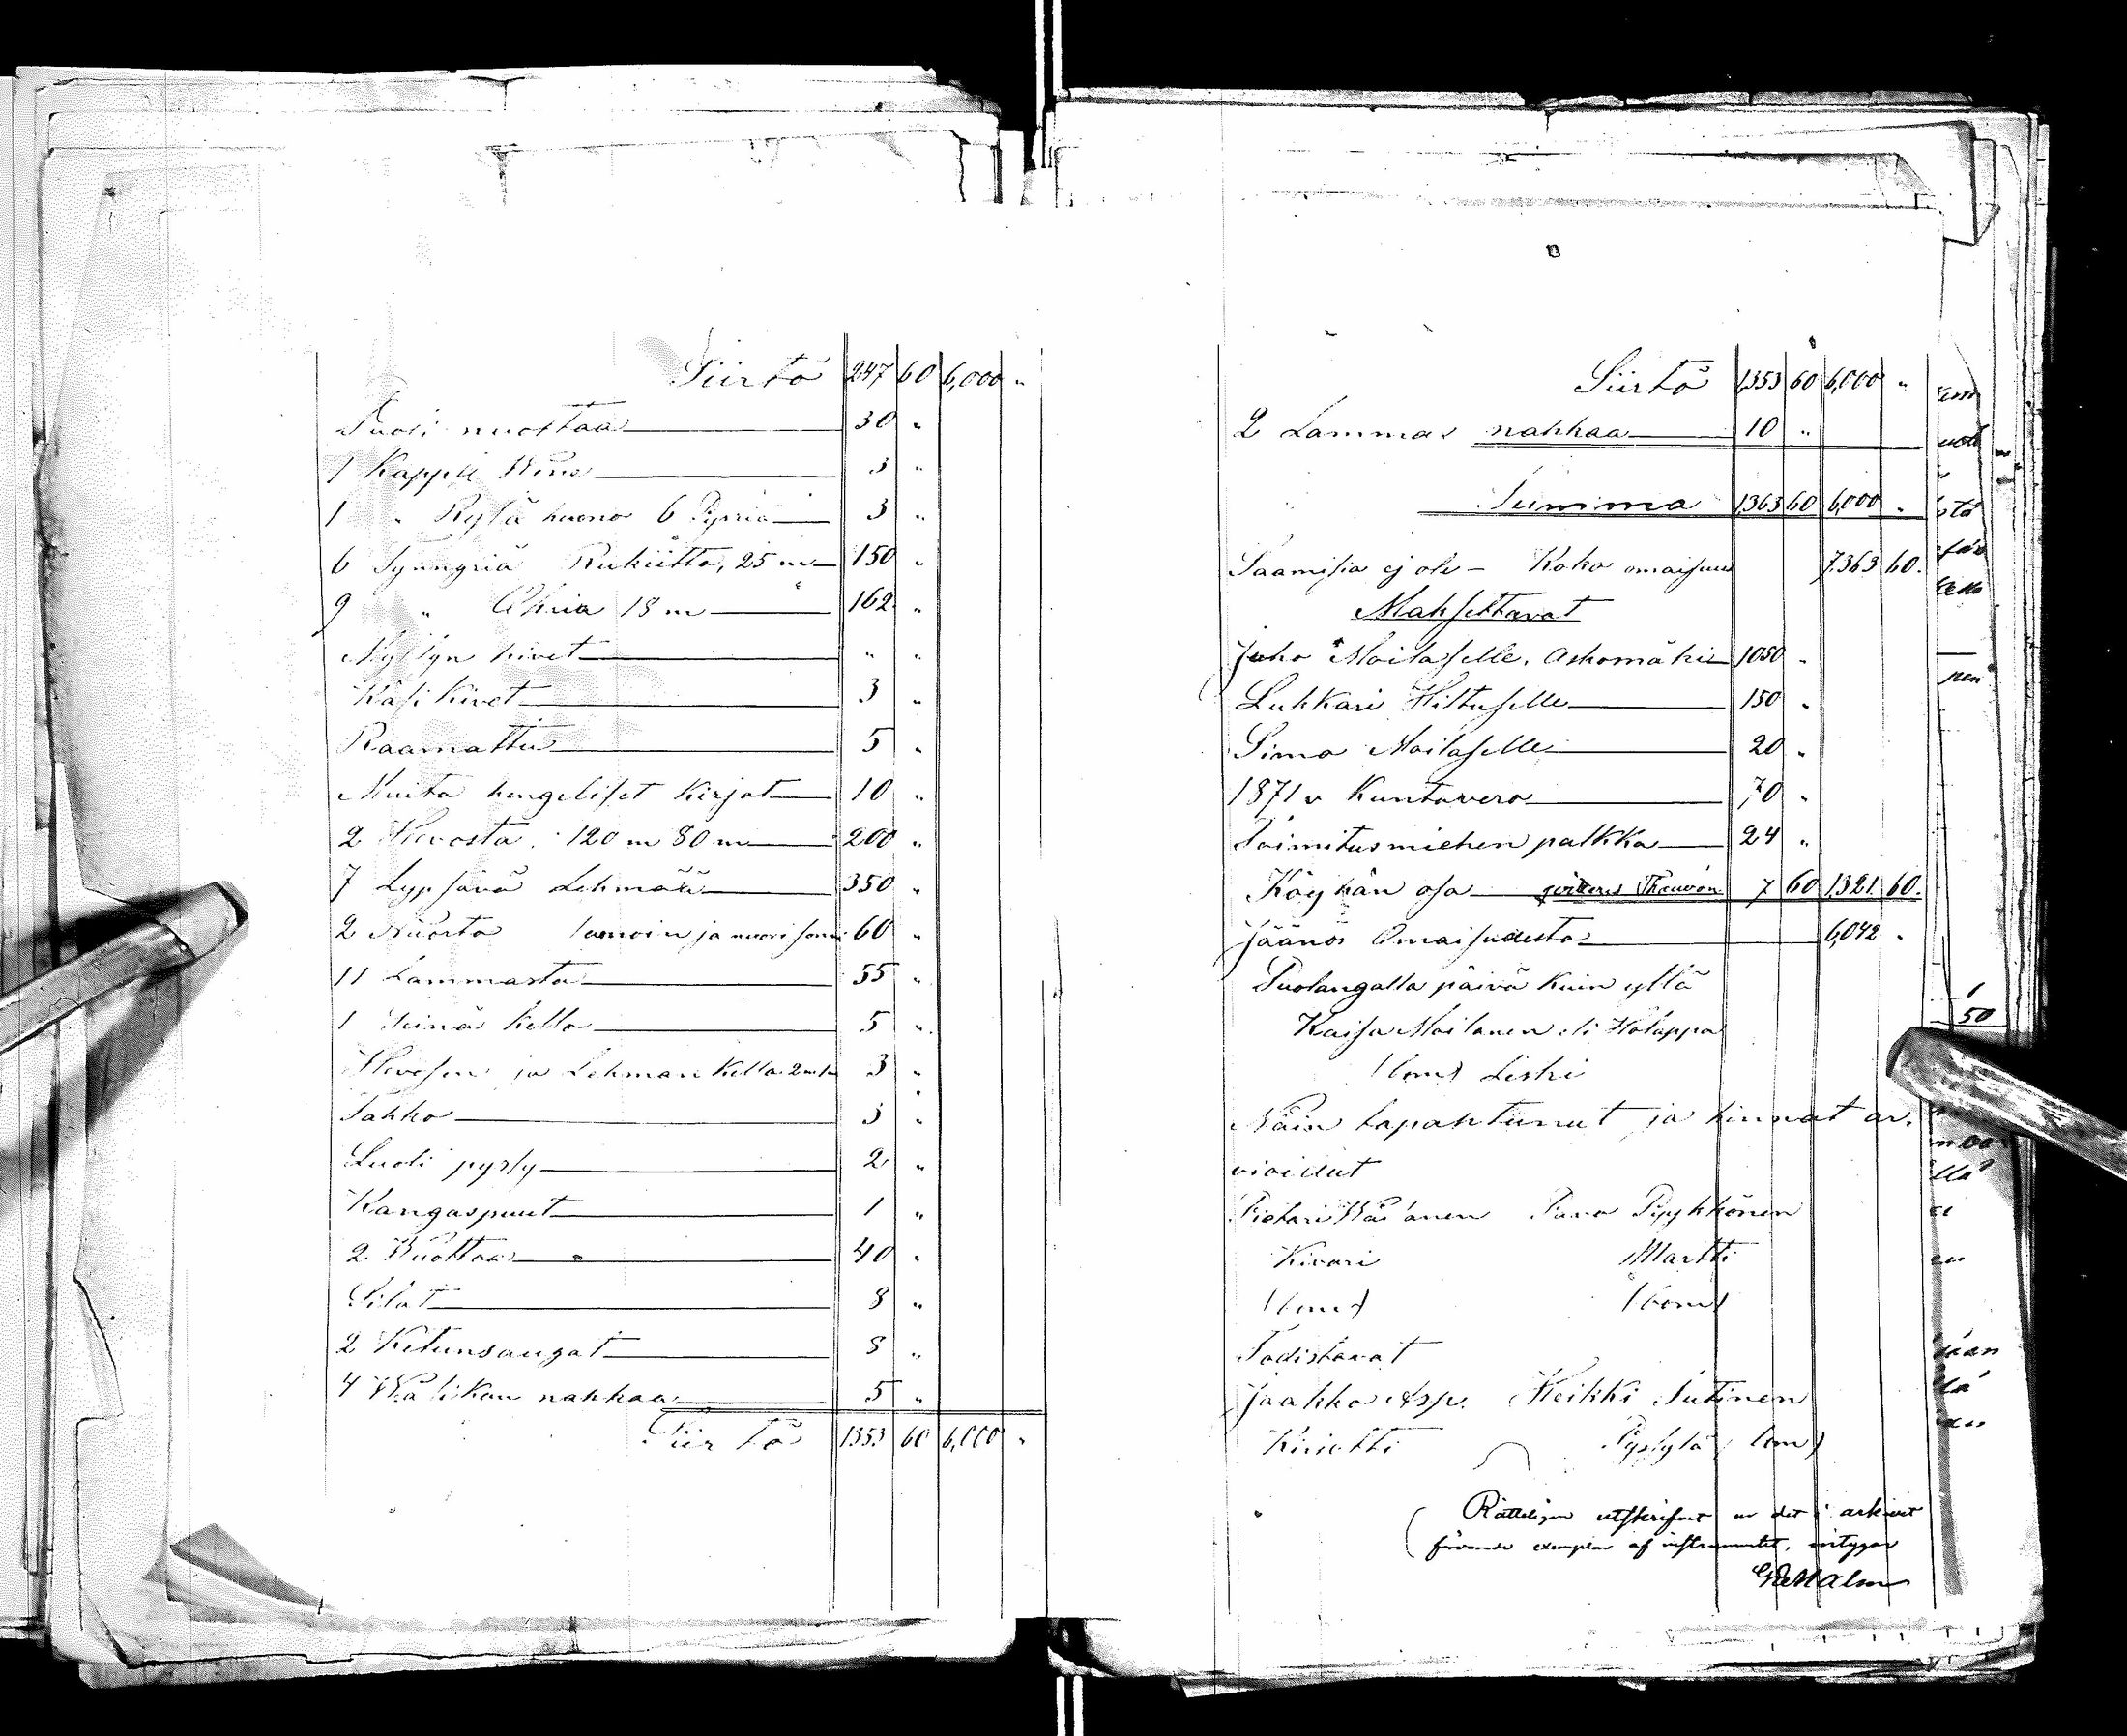 Siirtö 247 60 6,000 "
Puoli nuottaa 30 "
1 Kappeli 3 "
1 " Rysä huono 6 3 "
6 Tynnyriä Rukiitta, 25 m 150 "
9 " Ohria 18 m 162 "
Myllyn kivet " "
Käsi Kivet 3 "
Raamattu 5 "
Muita hengeliset Kirjat 10 "
2 Hevosta. 120 m 80 m 200 "
7 Lypsävä Lehmää 350 "
2 Nuorta ja nuori sonni 60 "
11 Lammasta 55 "
1 Seinä Kello 5 "
Hevosen ja Lehmän Kello 3 "
Tahko 3 "
Luoti pyssy 2 "
Kangaspuut 1 "
2 Nuottaa 40 "
Silat 8 "
2 Ketunraugat 8 "
4 Wasikan nahkaa 5 "
Siirtö 1353 60 6,000 "
Siirtö 1,353 60 6,000 "
2 Lammas nahkaa 10 "
Summa 1,363 60 6,000 "
Saamisia ej ole – Koko omaisuus 7,363 60.
Maksettavat
Juho Moilaselle, Askomäki 1050 "
Lukkari Hiltuselle 150 "
Simo Moilaselle 20 "
1871 v Kuntavero 70 "
Toimitusmiehen palkka 24 "
Köyhän osa 7 60 1,321 60.
Jäänös Omaisudesta 6,042 "
Puolangalla päivä Kuin yllä
Kaisa Moilanen eli Holappa
(bom) Leski
Näin tapahtunut ja hinnat ar-
vioidut
Pietari Wäisänen Paavo Pyykkönen
Kivari Martti
(bom) (bom)
Todistavat
Jaakko Asp. Heikki Sutinen
Kiriotti Pysylä (bom)
Rätteligen utskrifvet ur det i arkivet
förvarade exemplar af instrumentet, intygar